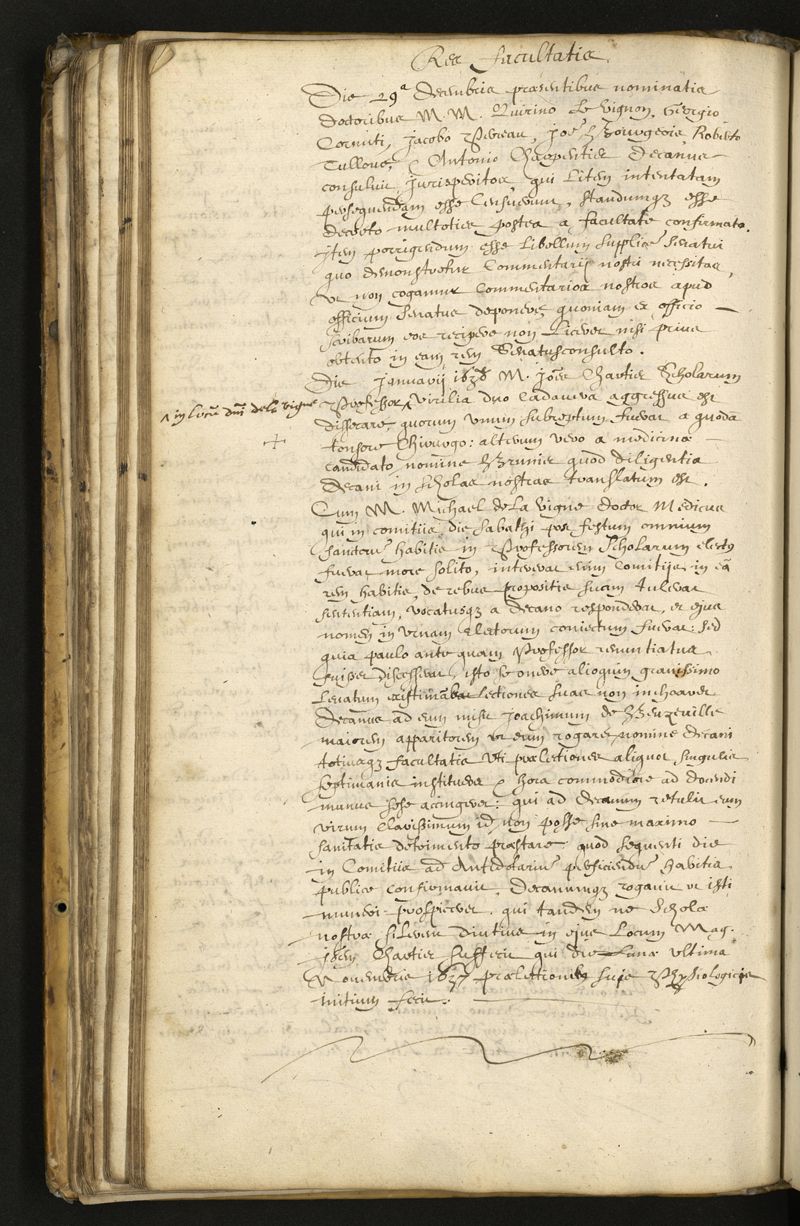 Res facultatis.
Die 29ª Decembris præsentibus nominatis
doctoribus M. M. Quirino le Vignon, Georgio
Cornuti, Jacobo Perreau, Joë Bourgeois, Roberto
Tullouë, Antonio Charpentier Decanus
consuluit Jurisperitos, qui Litem intentatam
persequendam esse Censuerunt, standumq3 esse
decreto multoties postea a facultate confirmato.
Item porrigendum esse Libellum supplicē senatui
quo demonstretur Commentarij nostri necessitas,
ut non cogamur Commentarios nostros apud
officium senatus deponere, quoniam ex officio
scribarum eos recipere non Liceret nisi prius
obtento in eam rem Senatusconsulto.
Die Januarij 1638 M. Joës Chartier Scholarum
^ in locū dni dela vigne
Professor ^ virilia duo Cadavera aggressus est
dissecare, quorum unum subreptum fuerat a quodā
+
tonsore Chirurgo: alterum vero a medicinæ
candidato nomine Brunis quod diligentia
Decani in scholas nostras translatum est.
Cum M. Michael de La Vigne doctor Medicus
qui in comitiis die sabathi post festum omnium
sanctorū habitis in Professorem Scholarum electus
fuerat more solito, intererat enim Comitijs in eā
rem habitis, de rebus propositis suam tulerat
sententiam, vocatusq3 a Decano responderat, et ejus
nomen in urnam Electorum coniectum fuerat: sed
quia paulo ante quam Professor renuntiatus
fuisset discesserat, isto se onere alioquin gravissimo
Levatum existimabat lectiones suas non inchoaret
Decanus ad eum misit Joachimum de Beuzeville
maiorem apparitorem ut eum rogaret nomine Decani
totiusq3 facultatis uti prælectiones aliquot singulis
septimanis institueret hora commodiore ad docendi
munus sese accingeret: qui ad Decanum retulit eum
virum Clarissimum id non posse sine maximo
sanitatis detrimento præstare quod sequenti die
in Comitiis ad Antidotariū perficiendū habitis
publice confirmavit, Decanumq3 rogavit ut isti
muneri prospiceret. qui tandem ne Scholæ
nostræ silerent diutius in ejus Locum Mag.
Joēn Chartier suffecit qui die Lunæ ultima
Novembris 1637 prælectionem suæ Physiologicæ
initium fecit.